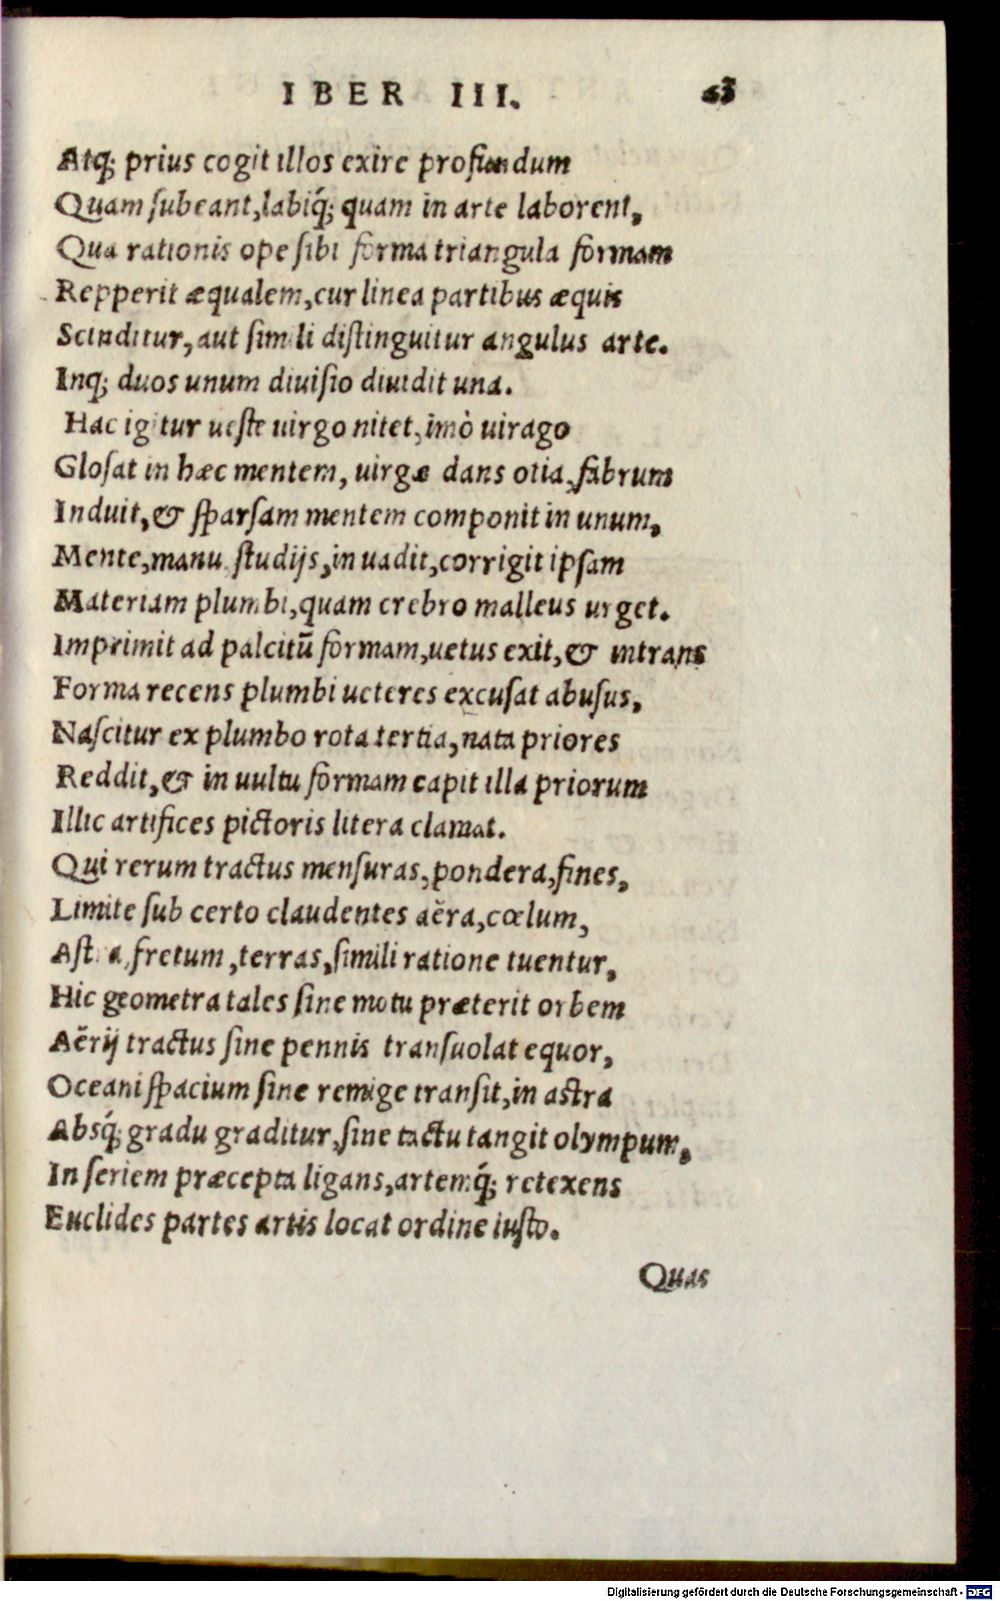 IBER III. 63
Atq; prius cogit illos exire profundum
Quam subeant, labiq́; quam in arte laborent,
Qua rationis ope sibi forma triangula formam
Repperit æqualem, cur linea partibus æquis
Scinditur, aut simili distinguitur angulus arte.
Inq; duos unum diuisio diuidit una.
Hac igitur ueste uirgo nitet, imò uirago
Glosat in hæc mentem, uirgæ dans otia, fabrum
Induit, & sparsam mentem componit in unum,
Mente, manu studijs, inuadit, corrigit ipsam
Materiam plumbi, quam crebro malleus urget.
Imprimit ad palcitū formam, uetus exit, & intrans
Forma recens plumbi ueteres excusat abusus,
Nascitur ex plumbo rota tertia, nata priores
Reddit, & in uultu formam capit illa priorum
Illic artifices pictoris litera clamat.
Qui rerum tractus mensuras, pondera, fines,
Limite sub certo claudentes aëra, cœlum,
Astra, fretum, terras, simili ratione tuentur,
Hic geometra tales sine motu præterit orbem
Aërij tractus sine pennis transuolat equor,
Oceani spacium sine remige transit, in astra
Absq́; gradu graditur, sine tactu tangit olympum,
In seriem præcepta ligans, artemq́; retexens
Euclides partes artis locat ordine iusto.
Quas
Digitalisierung gefördert durch die Deutsche Forschungsgemeinschaft - DFG